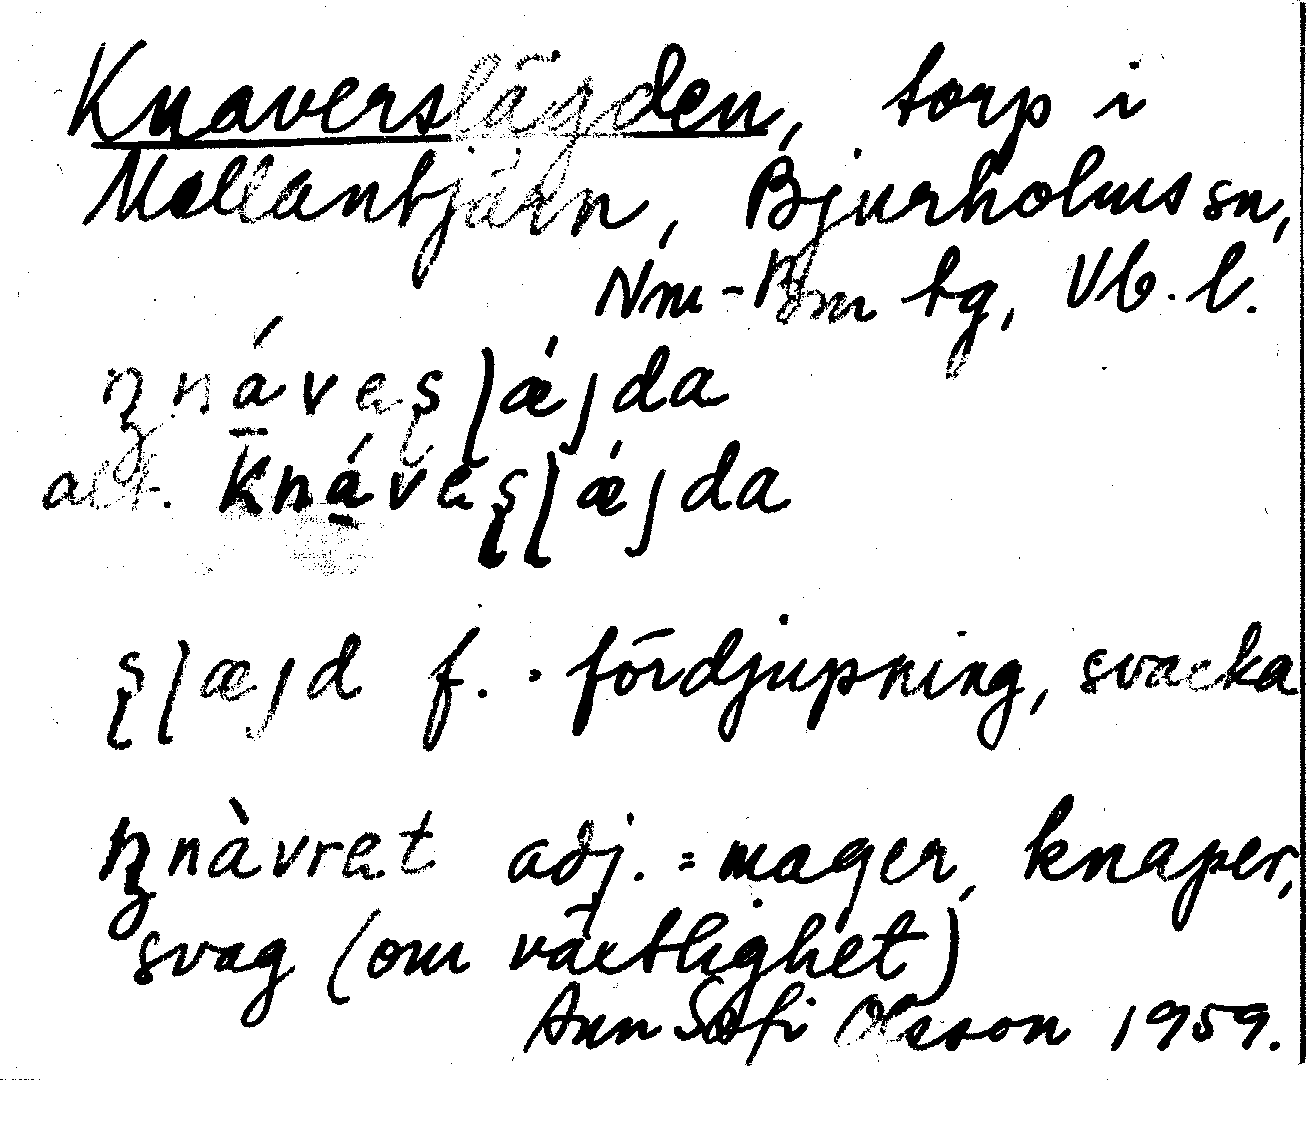 Knaverslägden, torp i
Mellanbjärn, Bjurholms sn,
Nm-Bm tg, Vb. l.
ȵnávesʃǽjda
alt. knávesʃǽjda
sʃæjd f. · fördjupning, svacka
ȵnàvret adj. = mager, knaper,
svag (om växtlighet)
Ann Sofi Olsson 1959.